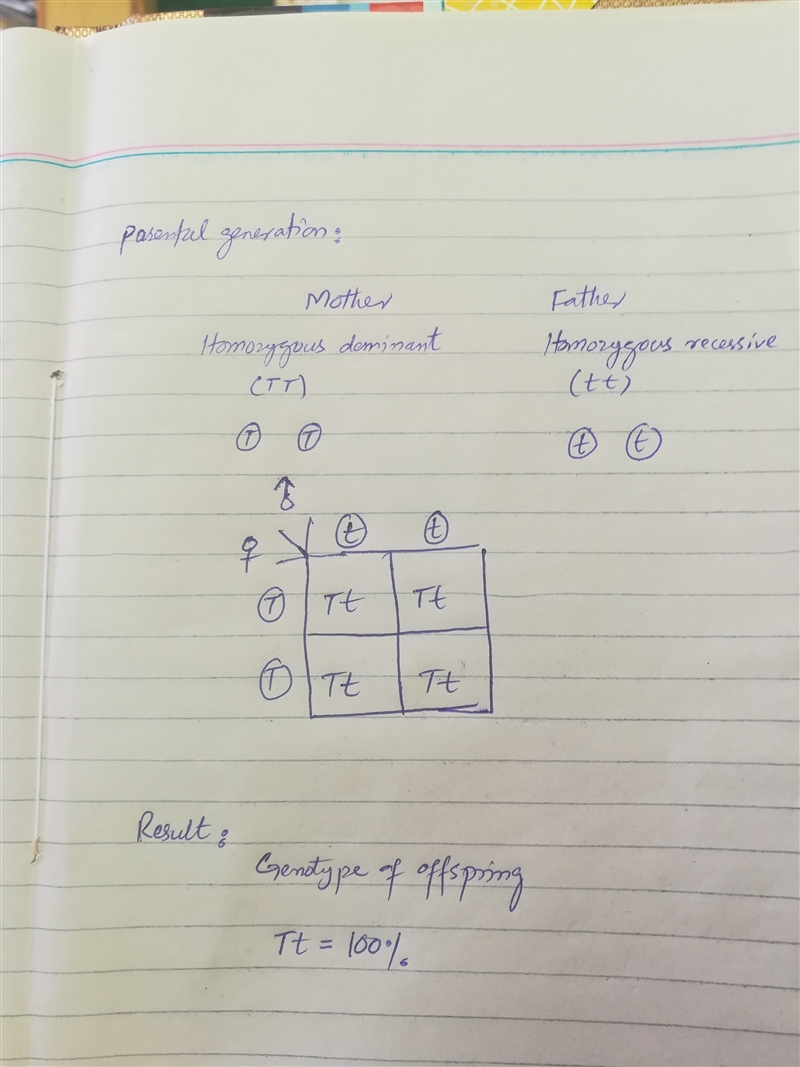 Parental generation:
Mother Father
Homozygous dominant Homozygous recessive
(TT) (tt)
T T t t
♂
♀ t t
T Tt Tt
T Tt Tt
Result:
Genotype of offspring
Tt = 100%